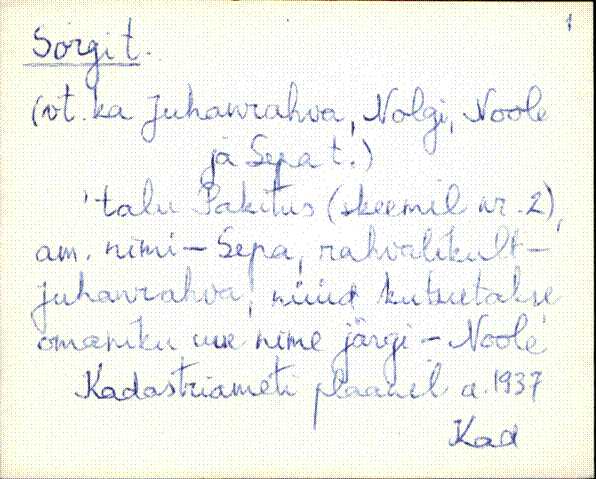 1
Sorgi t.
(vt. ka Juhanrahva, Nolgi, Noole
ja Sepa t.)
'talu Pakitus (skeemil nr. 2),
am. nimi – Sepa, rahvalikult –
Juhanrahva, nüüd kutsutakse
omaniku uue nime järgi – Noole'
Kadastriameti plaanil a. 1937
Kad